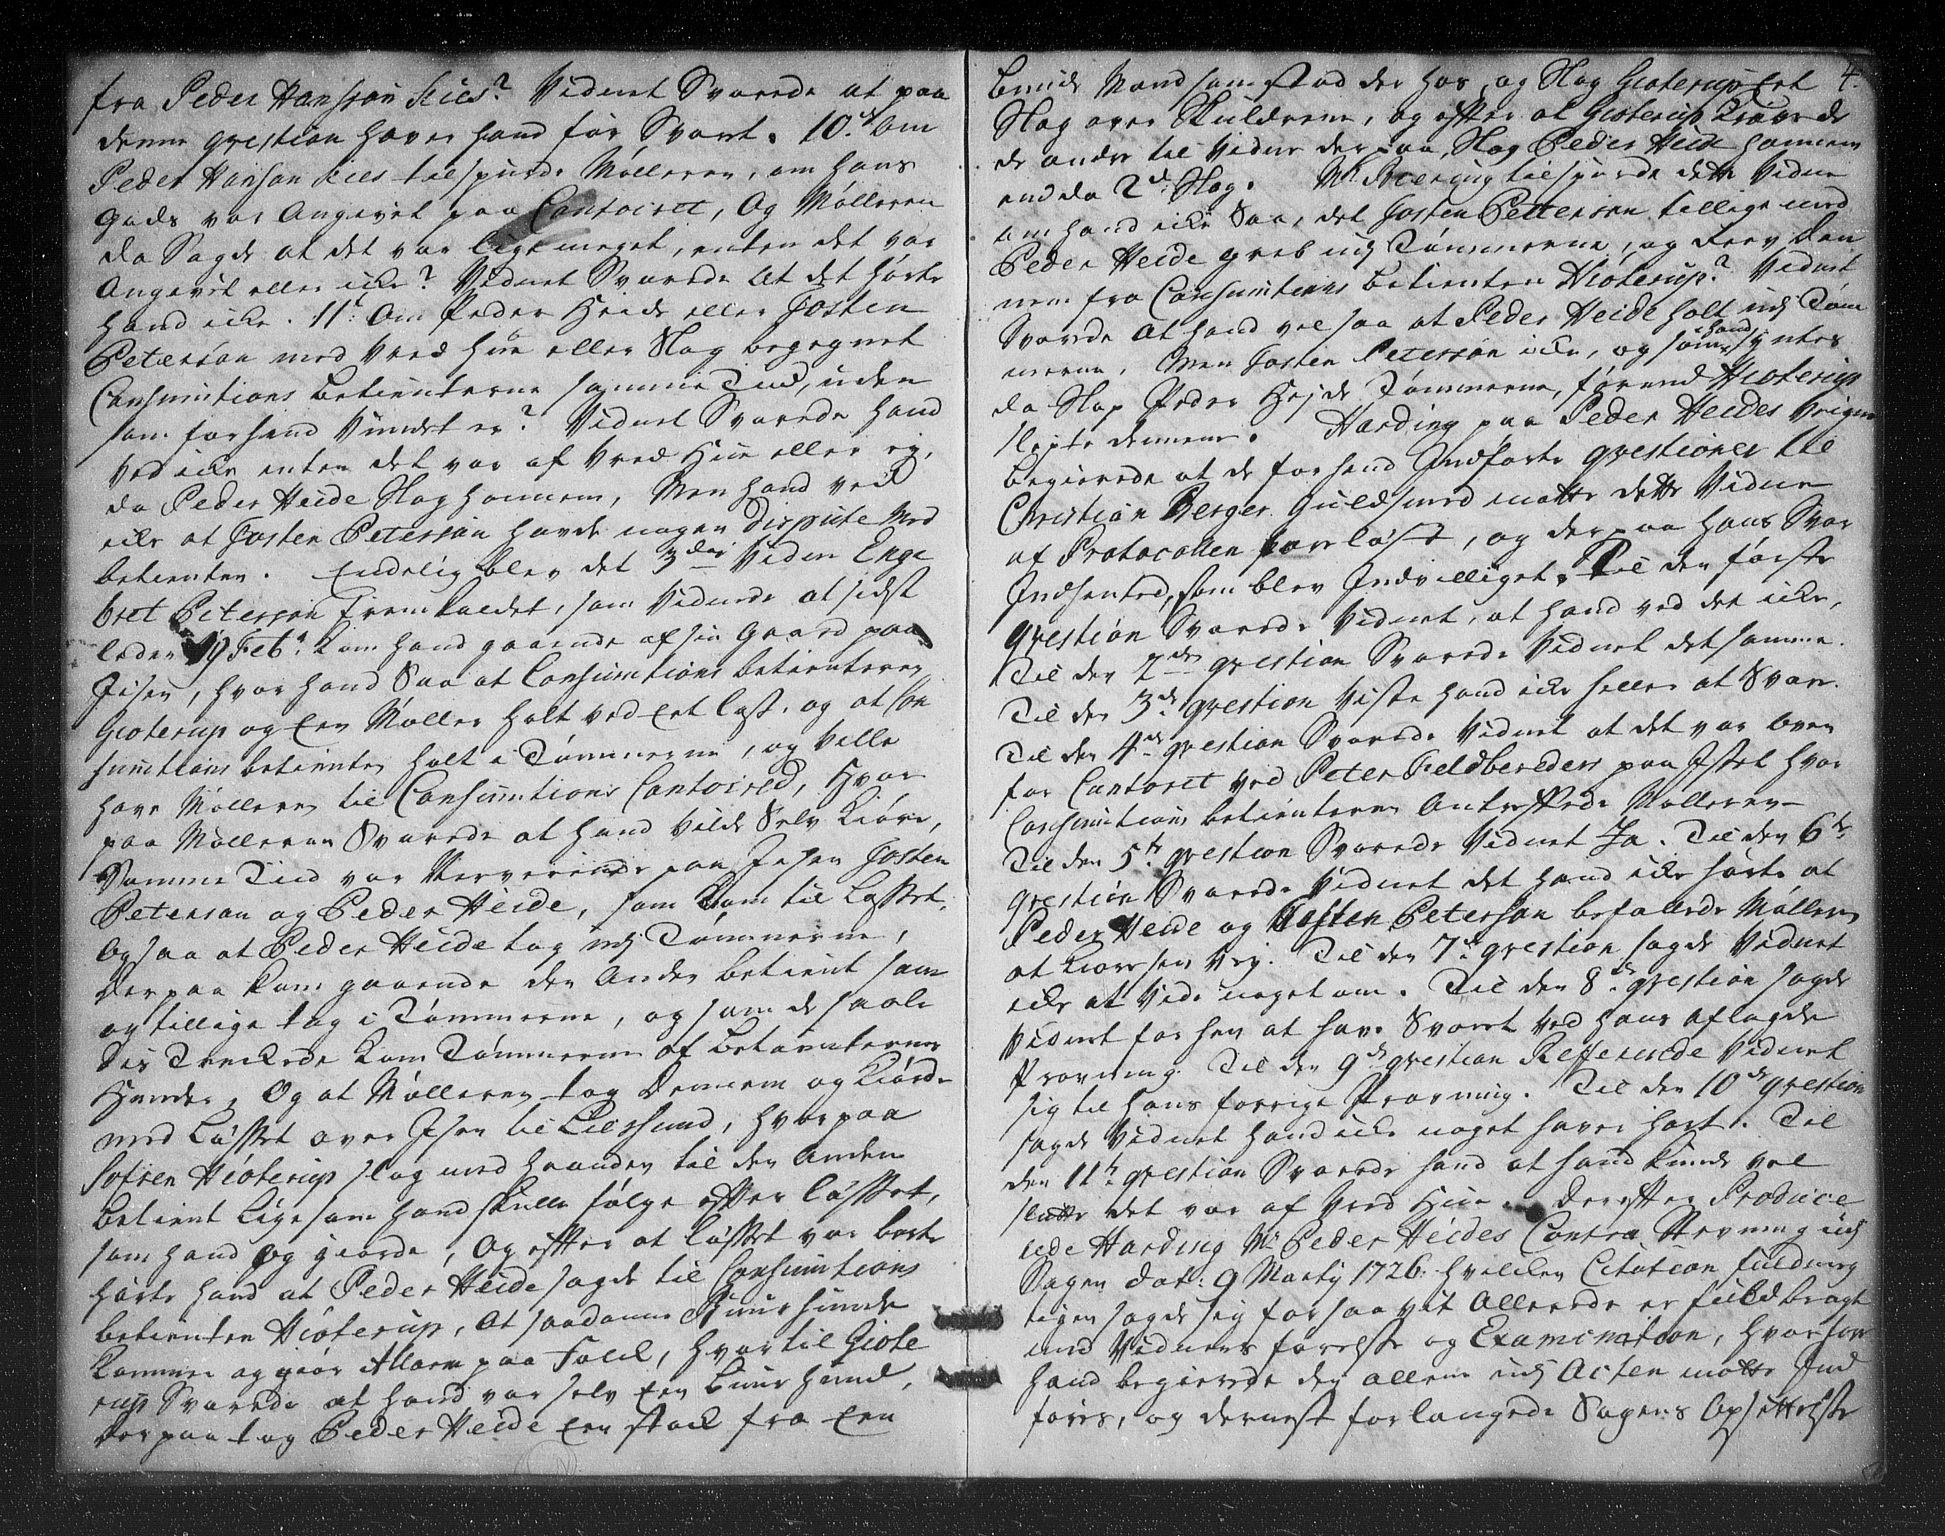 fra Peder Hansson Kies? Vidnet Svarede at paa
denne qvestion haver hand før Svaret. 10. Om
Peder Hanson Kies tilspurde Mølleren, om hans
Gods var Angivet paa Contoiret, Og Mølleren
da Sagde at det var lige meget, enten det var
Angivet eller icke? Vidnet Svarede At det hørte
hand icke. 11. Om Peder Heide eller Josten
Peterson med Vred Hue eller Slag begegnet
Consumtions betienterne samme Tiid, uden
som forhend Vundet er? Vidnet Svarede hand
Ved icke enten det var af Vred Hue eller ey,
da Peder Heide Slog hannem, Men hand veed
icke at Josten Peterson havde nogen dispute Med
betienten. Endelig blev det 3die Vidne Enge
bret Peterson fremkaldet, som Vidnede at sidst
leden 19 Feb. kom hand gaaende af sin Gaard paa
Jisen, hvor hand Saa at Consumtions betienteren
Gioterup og Een Møller holt ved Eet Læs, og at Con
sumtions betienten holt i Tømmerne, og Ville
have Mølleren til Consumtions Contoired, Hvor
paa Mølleren Svarede at hand Vilde Selv Kiøre,
Samme Tiid var Nerverende paa Jisen Josten
Peterson og Peder Heide, som kom til Lasset,
Og saa at Peder Heide tog udj Tømmerne,
Der paa kom gaaende den Anden betient som
og tillige tog i Tømmerne, og som de saale
des Treckede kom Tømmerne af betienternes
Hender, Og at Mølleren tog Dennem og Kiørde
med Læsset over Jsen til Liersund, hvor paa
Sofren Hioterup slog med haanden til den Anden
betient Ligesom hand skulle følge efter Læsset,
som hand og giorde, Og efter at Læsset var borte
hørte hand at Peder Heide sagde til Consumtions
betienten Hioterup, At saadanne Buurhunde
kommer og giør Allarm paa Folck, hvortil Giote
rup Svarede at hand var selv Een Buur hund,
Der paa tog Peder Heide Een stock fra Een
4.
bunde Mand som stod der hos, og Slog Gioterup Eet
Slag over Skuldrene, og efter at Gioterup Kravede
de andre til Vidne der paa, Slog Peder Heide hannem
endda 2de Slag. Mr. tilspurde dette Vidne
om hand icke Saa, det Josten Petterson tillige med
Peder Heide greb udj Tømmerne, og drev den
nem fra Consumtions betienten Hioterup? Vidnet
Svarede at hand vel saa at Peder Heide holt udj Tøm
merne, Men Josten Peterson icke, og som hand syntes
da Slap Peder Hejde Tømmerne, førend Hioterup
slapte dennem. Harding paa Peder Heides Vegne
begierede at de forhend Jndførte qvestioner til
Christian Berger Guldsmed motte dette Vidne
af Protocollen forelæst, og der paa hans Svar
Jndhented, som blev Jndvilliget. Til den første
qvestion Svarede Vidnet, at hand ved det icke,
Til den 2den qvestion Svarede Vidnet det samme.
Til den 3de qvestion Viste hand icke heller at Svare.
Til den 4de qvestion Svarede Vidnet at det var oven
for Contoret ved Peter Feldbereders paa Jsset hvor
Consumtions betienteren Antreffede Mølleren
Til den 5te qvestion Svarede Vidnet Ja. Til den 6te
qvestion Svarede Vidnet det hand icke hørte at
Peder Heide og Josten Peterson befalede Mølleren
at Kiøre sin Vej. Til den 7de qvestion sagde Vidnet
icke at Vide noget om. Til den 8de qvestion sagde
Vidnet for hen at have Svaret Ved hans aflagde
Provning. Til den 9de qvestion Refferede Vidnet
sig til hans forrige Provning. Til den 10de qvestion
sagde Vidnet hand icke noget haver hørt. Til
den 11te qvestion Svarede hand at hand kunde vel
slutte det var af Vred Hue. Derefter Produce
rede Harding Mr. Peder Heides Contra Stevning udj
Sagen dat: 9 Martij 1726. hvilcken Citation fuldmeg
tigen sagde sig forsaavit Allerede er fuldbragt
med Vidners førelse og Examination, hvorfore
hand begierede den alleene udj Acten motte Jnd
føres, og dernest forlangede Sagens Opsettelse